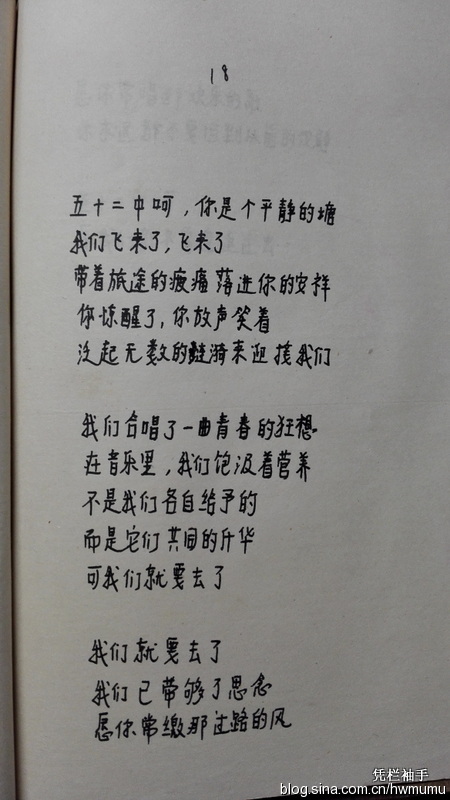 18
五十二中呵，你是个平静的塘
我们飞来了，飞来了
带着旅途的疲痛落进你的安祥
你惊醒了，你放声笑着
泛起无数的涟漪来迎接我们
我们合唱了一曲青春的狂想
在音乐里，我们饱汲着营养
不是我们各自给予的
而是它们共同的升华
可我们就要去了
我们就要去了
我们已带够了思念
愿你常缴那过路的风
凭栏袖手
blog.sina.com.cn/hwmumu